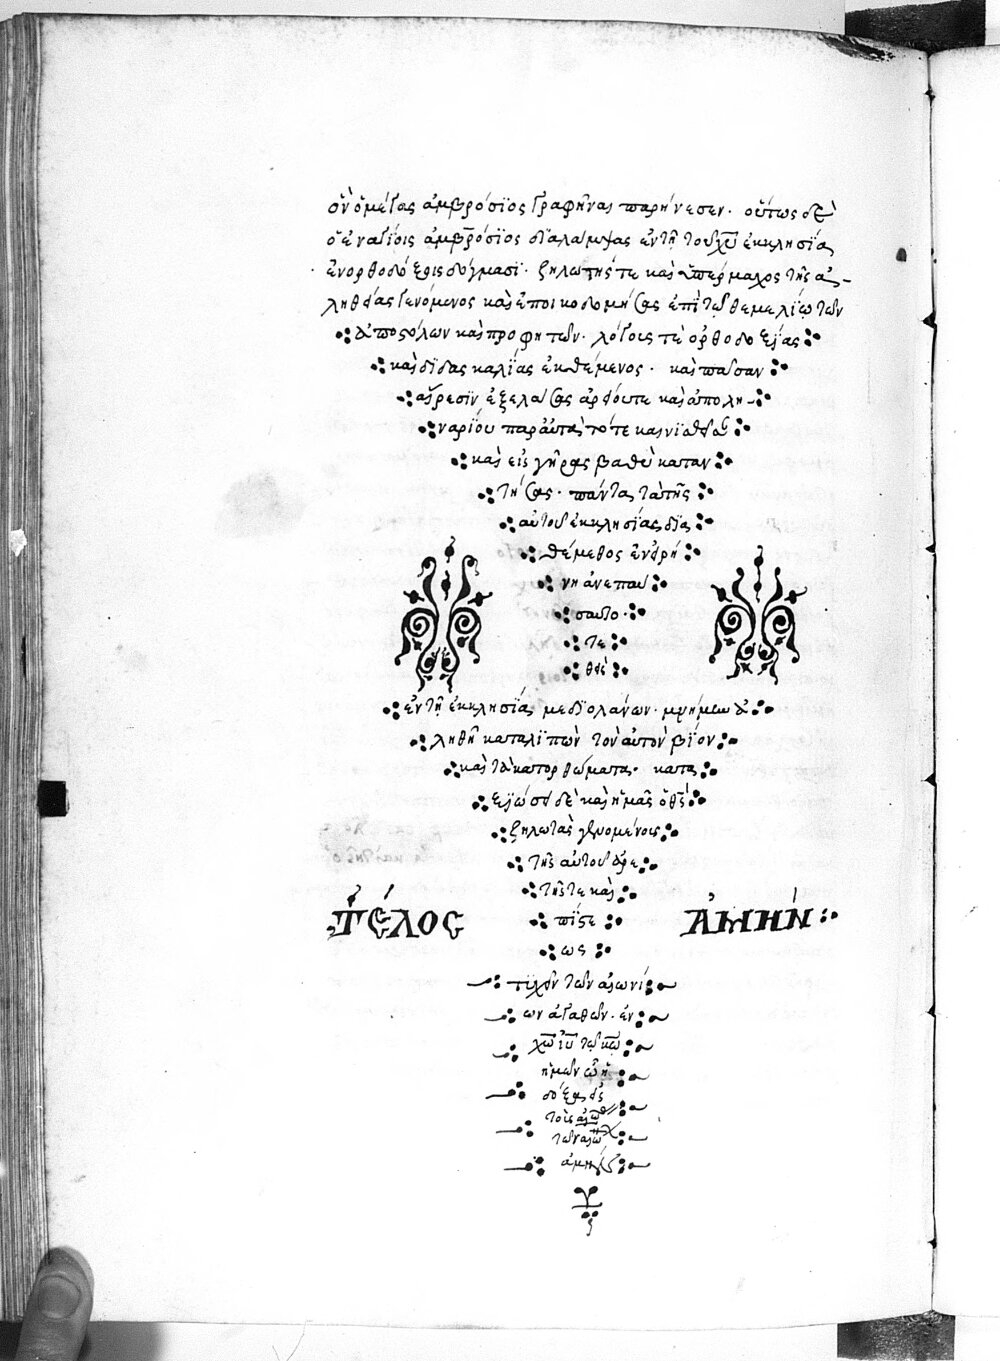 ὃν ὁ μέγας ἀμβρόσϊος γραφῆναι παρήνεσεν· οὕτως δὲ
ὁ ἐν ἁγίοις ἀμβρόσϊος διαλάμψας ἐν τῆ τοῦ χυ ἐκκλησία
ἐν ὀρθοδόξοις δόγμασϊ· ζηλωτής τε καὶ ὑπέρμαχος τῆς ἀ-
ληθείας γενόμενος καὶ ἐποικοδομήσας ἐπὶ τῶ θεμελίω τῶν
ἀποστόλων καὶ προφητῶν· λόγοις τὲ ὀρθοδοξίας
καὶ διδασκαλίας ἐκθέμενος· καὶ πᾶσαν
αἵρεσϊν ἐξελάσας ἀρείου τε καὶ ἀπολι-
ναρίου
καὶ εἰς γῆρας βαθὺ καταν
τήσας· πάντα τὰ τῆς
αὐτοῦ ἐκκλησίας δϊα
θέμενος ἐν εἰρή
νη ἀνεπαύ
σατο·
τε
θεὶς
ἐν τῆ ἐκκλησία μεδϊολάνων· μνήμην ἀ
ληθῆ καταλϊπὼν τὸν αὐτοῦ βίον
καὶ τὰ κατορθώματα· κατα
ξιώσοι δὲ καὶ ἡμᾶς ὁ θς
ζηλωτὰς γενομένους
τῆς αὐτοῦ ἀρε
τῆς τε καὶ
πίστε
ως
τέλος
ἀμήν
τϊχεῖν τῶν αἰωνί
ων ἀγαθῶν· ἐν
χω ιυ τῶ κω
ἡμῶν ὧ ἡ
δόξα εἰς
τοὺς αἰῶ
τῶν αἰώ
ἀμήν